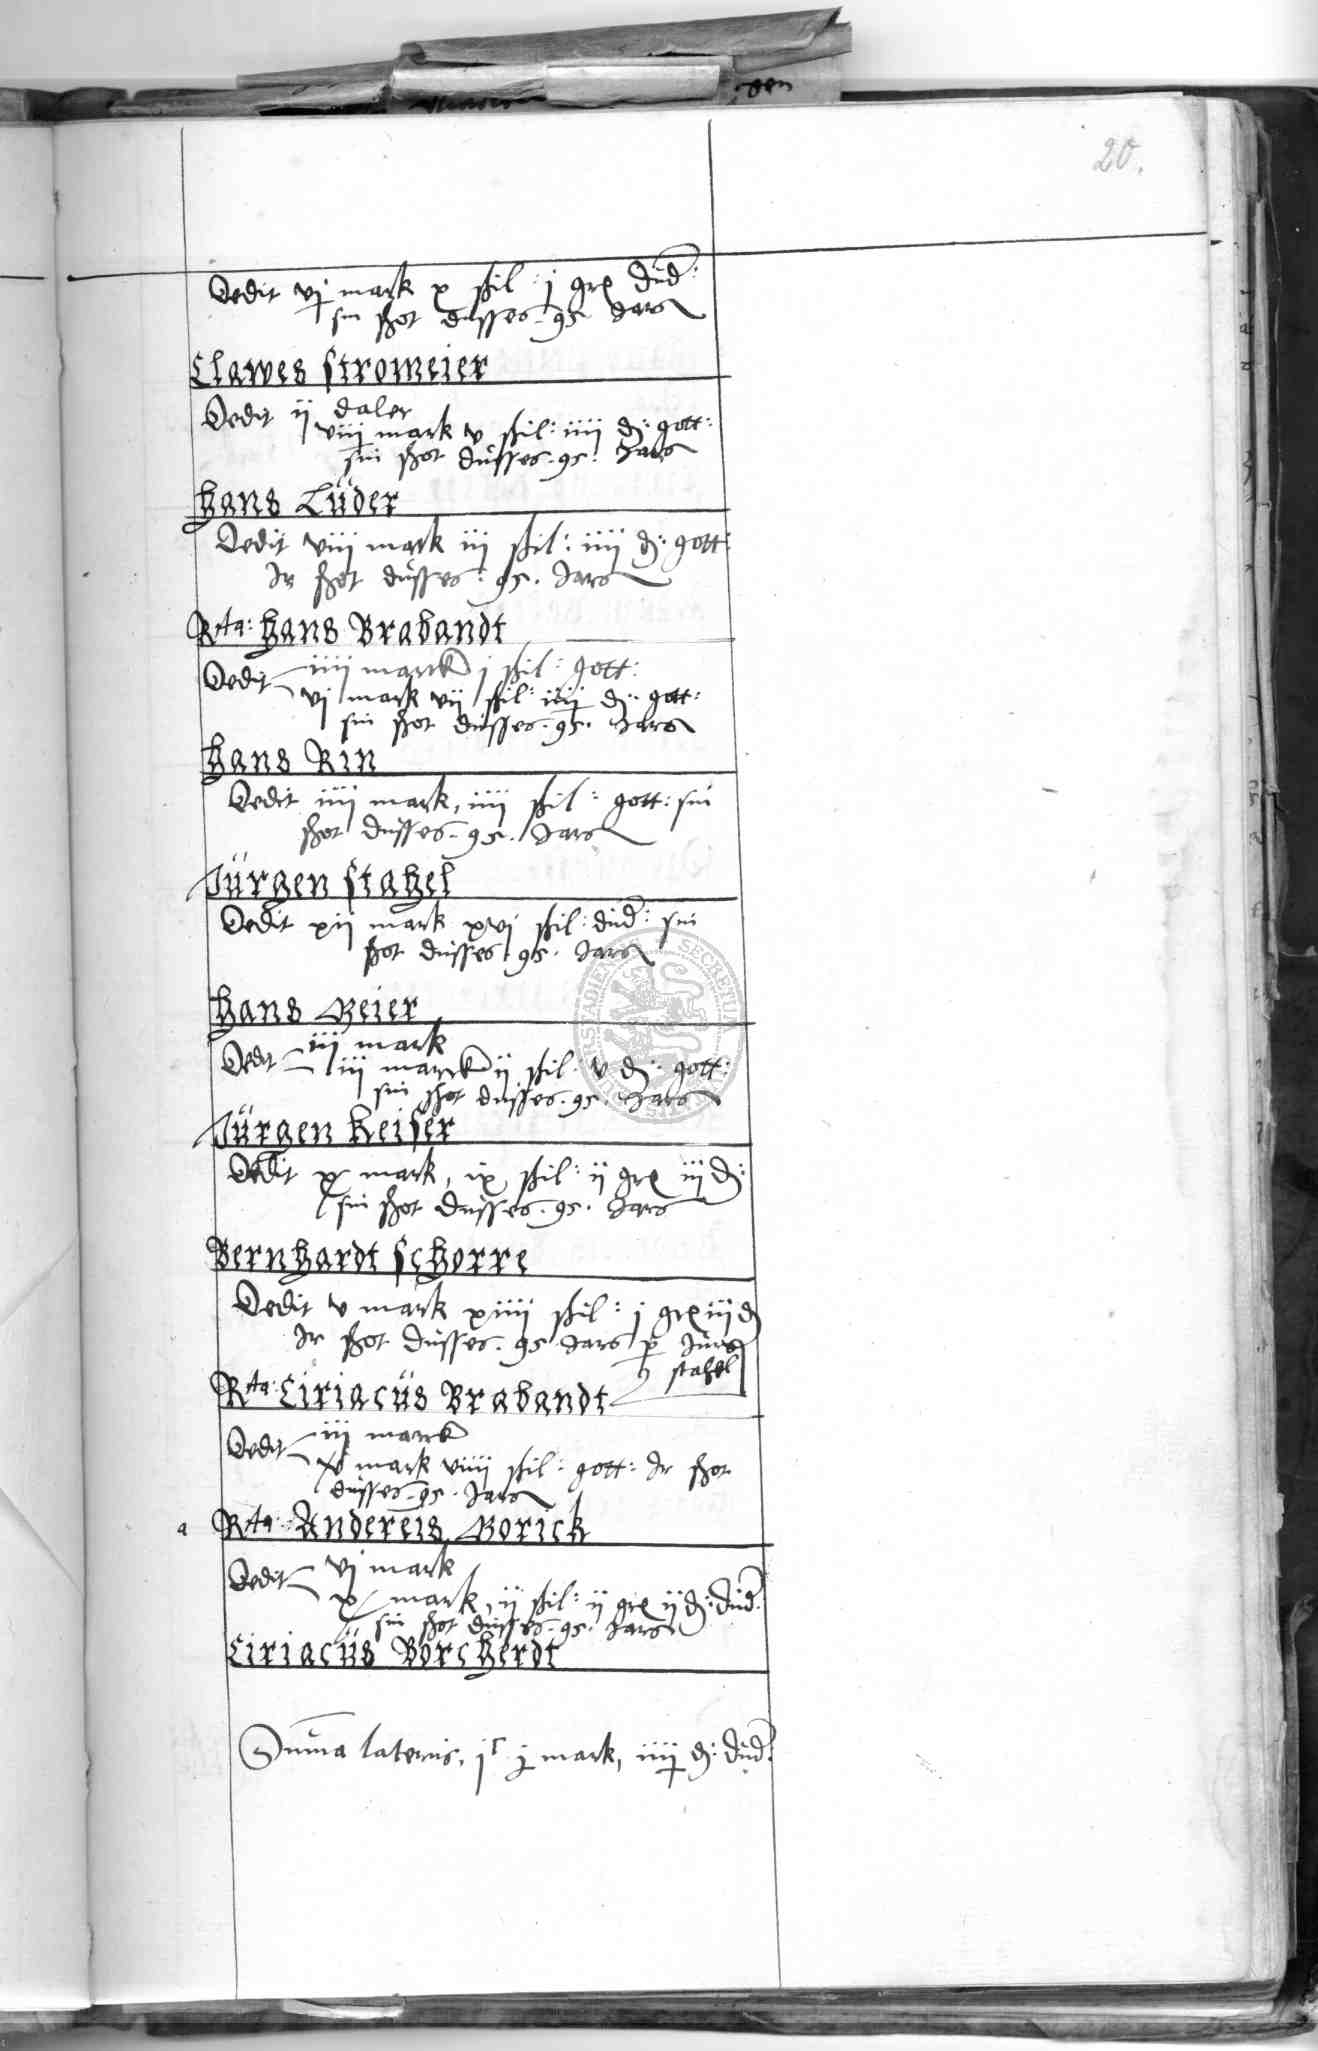 20.
Dedit vj mark x ßhil: j grx dud:
sin shot dusses .95. Jars
Clawes stromeier
Dedit ij daler
viij mark v shil: iiij d: gott:
sin shot dusses .95. Jars
hans Lüder
Dedit viij mark iij shil: iiij d: gott:
Jr shot dusses .95. Jars
Rta: hans Brabandt
Dedit iiij marck j shil: gott:
vj mark vij shil: iiij d: gott:
sin shot dusses .95. Jars
hans Rin
Dedit iiij mark, iiij shil: gott: sin
shot dusses .95. Jars
Jürgen stahel
Dedit xij mark xvj shil: dud: sin
shot dusses .95. Jars
hans Beier
Dedit iij mark
iij marck ij shil: v d: gott:
sin shot dusses .95. Jars
Jürgen keiser
Dedit x mark, ix shil: ij grx iij d:
sin shot dusses .95. Jars
Bernhardt schorre
Dedit v mark xiiij shil: j grx iij d
Jr shot dusses .95. Jars p Jurg
stahel
Rta: Ciriacüs Brabandt
Dedit iij marck
v mark viiij shil: gott: Jr shot
dusses .95. Jars
a Rta: Andereis Borick
Dedit vj mark
x mark, ij shil: ij grx ij d: dud:
sin shot dusses .95. Jars
Ciriacüs Borcherdt
Suma lateris, jc j mark, iiij d: dud: